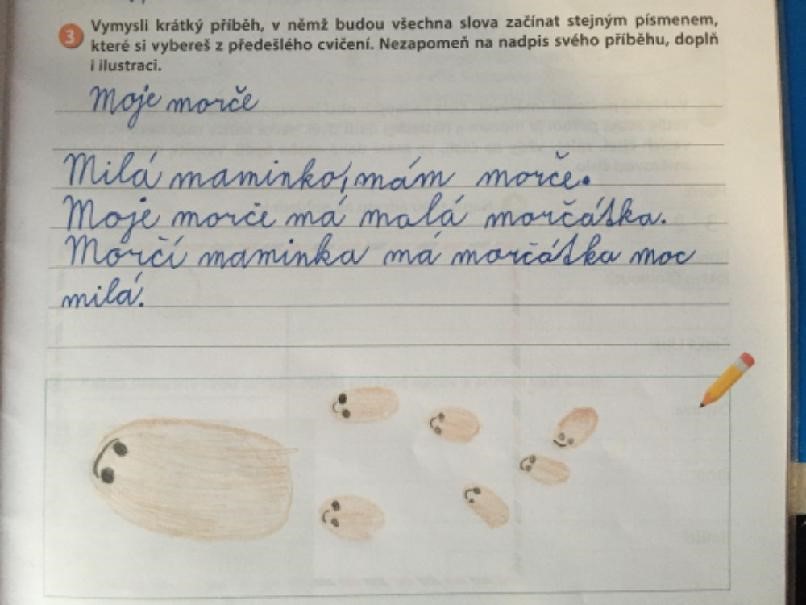 3 Vymysli krátký příběh, v němž budou všechna slova začínat stejným písmenem,
které si vybereš z předešlého cvičení. Nezapomeň na nadpis svého příběhu, doplň
i ilustraci.
Moje morče
Milá maminko, mám morče.
Moje morče má malá morčátka.
Morčí maminka má morčátka moc
milá.